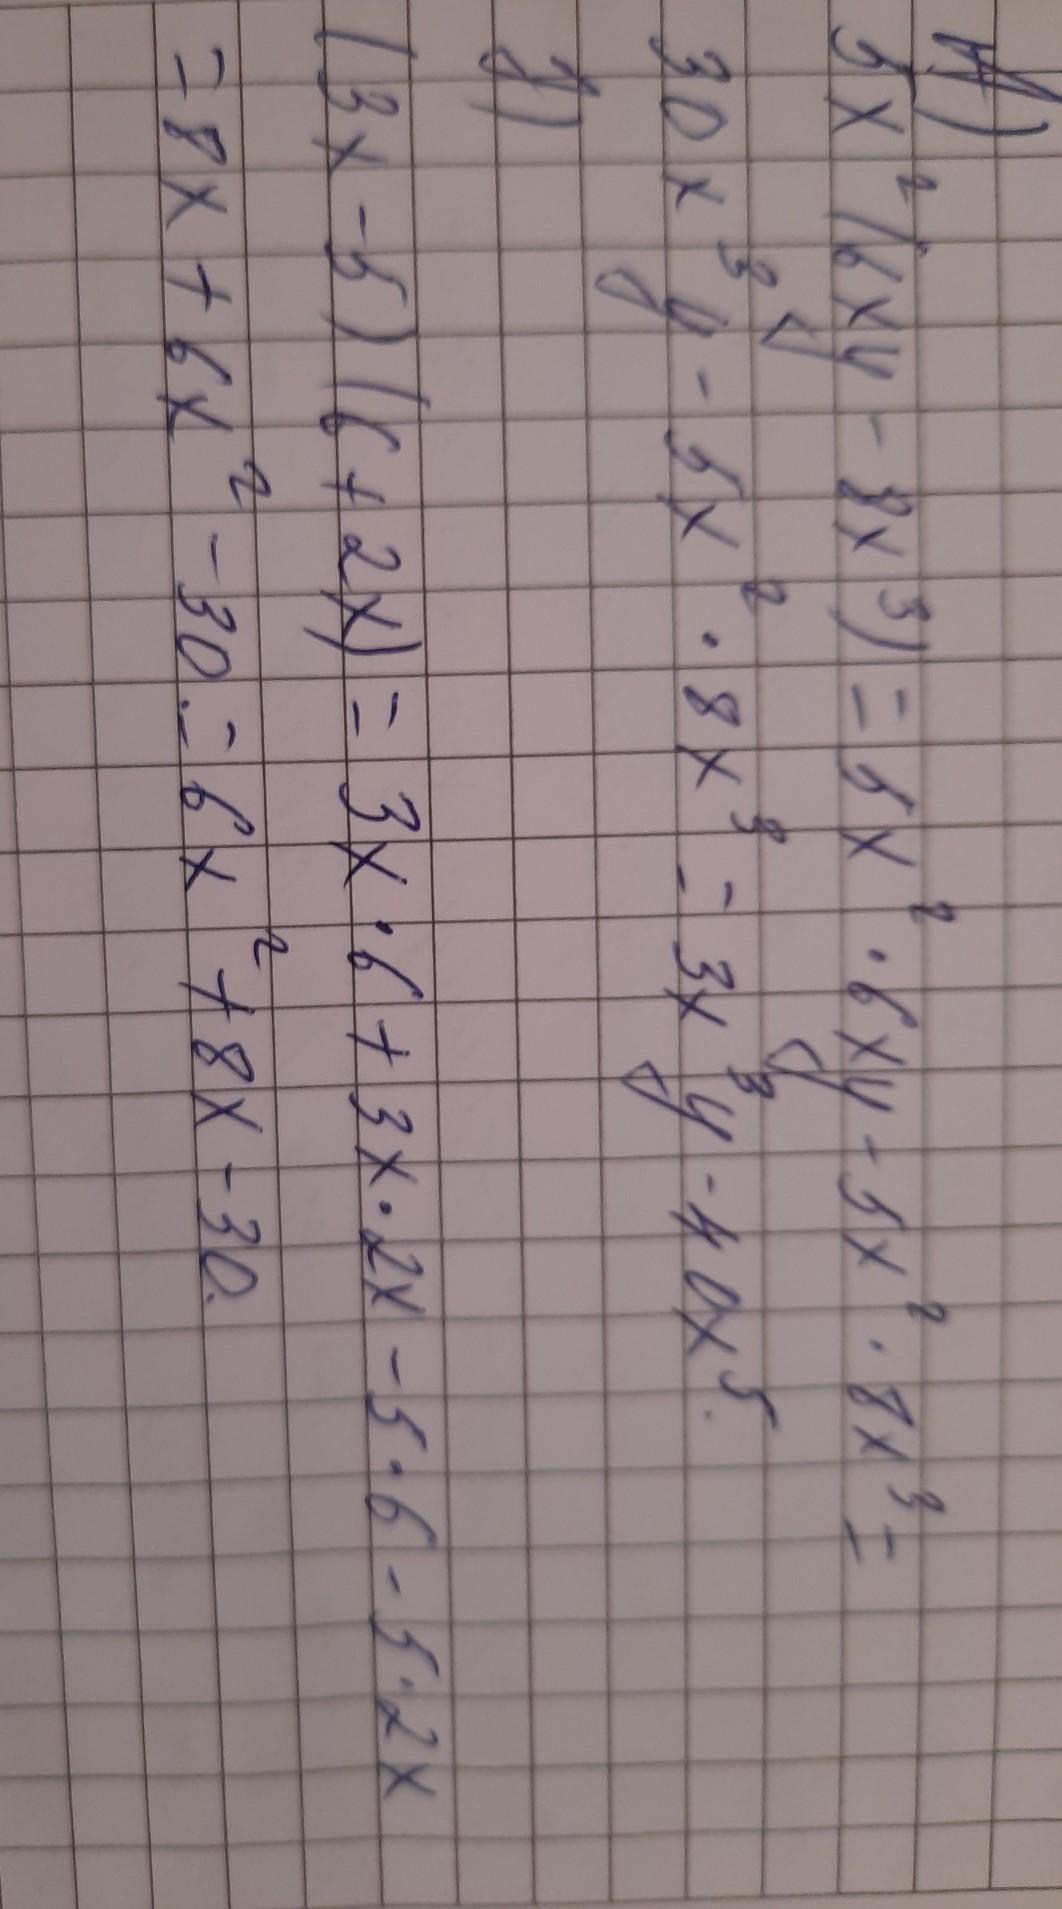 5x²(6xy - 8x³) = 5x² · 6xy - 5x² · 8x³ =
30x³y - 5x² · 8x³ = 3x³y - 40x⁵.
(3x - 5)(6 + 2x) = 3x · 6 + 3x · 2x - 5 · 6 - 5 · 2x
= 8x + 6x² - 30. = 6x² + 8x - 30.